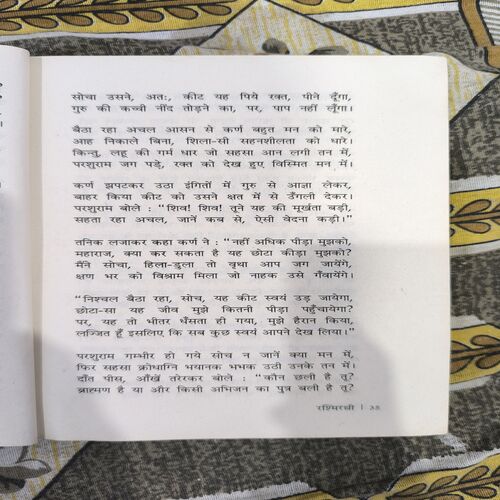 सोचा उसने, अतः, कीट यह पिये रक्त, पीने दूँगा,
गुरु की कच्ची नींद तोड़ने का, पर, पाप नहीं लूँगा।
बैठा रहा अचल आसन से कर्ण बहुत मन को मारे,
आह निकाले बिना, शिला-सी सहनशीलता को धारे।
किन्तु, लहू की गर्म धार जो सहसा आन लगी तन में,
परशुराम जग पड़े, रक्त को देख हुए विस्मित मन में।
कर्ण झपटकर उठा इंगितों में गुरु से आज्ञा लेकर,
बाहर किया कीट को उसने क्षत में से उँगली देकर।
परशुराम बोले : "शिव! शिव! तूने यह की मूर्खता बड़ी,
सहता रहा अचल, जानें कब से, ऐसी वेदना कड़ी।"
तनिक लजाकर कहा कर्ण ने : "नहीं अधिक पीड़ा मुझको,
महाराज, क्या कर सकता है यह छोटा कीड़ा मुझको?
मैंने सोचा, हिला-डुला तो वृथा आप जग जायेंगे,
क्षण भर को विश्राम मिला जो नाहक उसे गँवायेंगे।
"निश्चल बैठा रहा, सोच, यह कीट स्वयं उड़ जायेगा,
छोटा-सा यह जीव मुझे कितनी पीड़ा पहुँचायेगा?
पर, यह तो भीतर धँसता ही गया, मुझे हैरान किया,
लज्जित हूँ इसलिए कि सब कुछ स्वयं आपने देख लिया।"
परशुराम गम्भीर हो गये सोच न जानें क्या मन में,
फिर सहसा क्रोधाग्नि भयानक भभक उठी उनके तन में।
दाँत पीस, आँखें तरेरकर बोले : "कौन छली है तू?
ब्राह्मण है या और किसी अभिजन का पुत्र बली है तू?
रश्मिरथी |